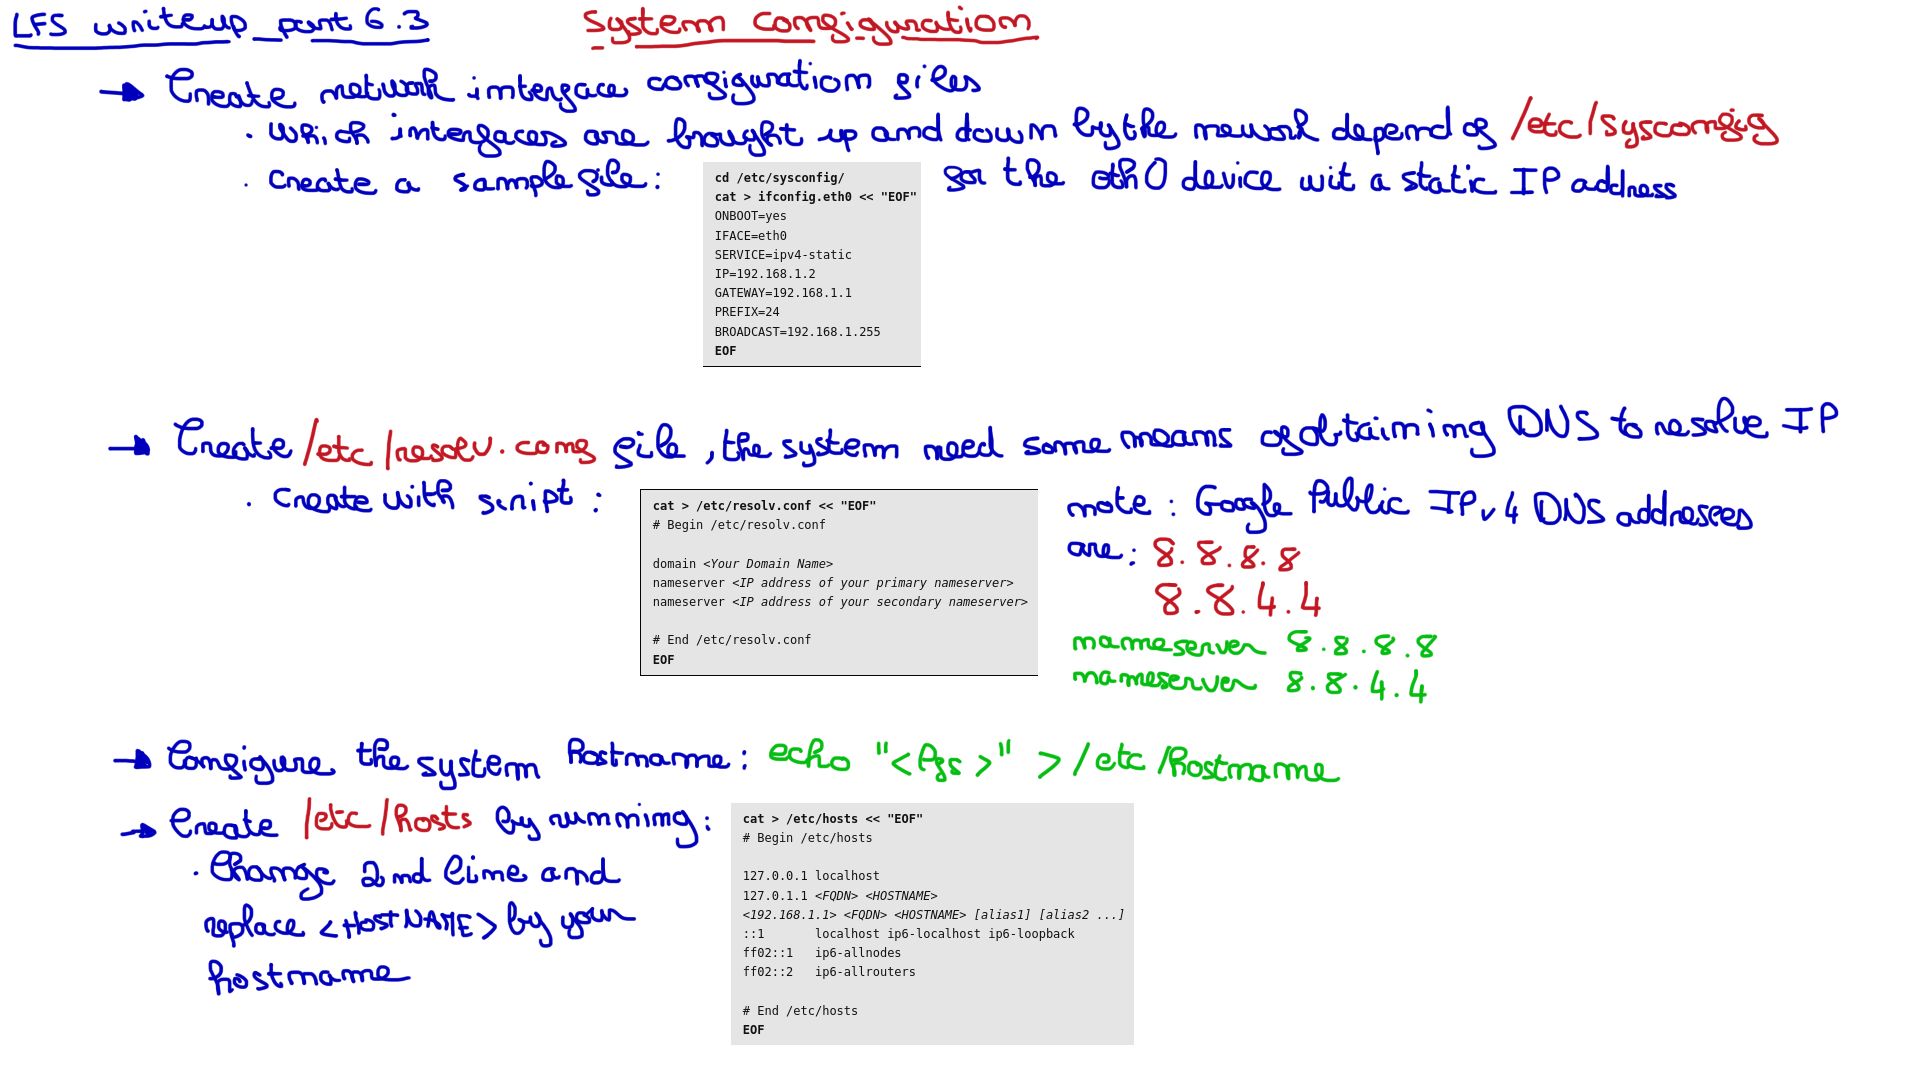 LFS writeup part 6.3
System configuration
→ Create network interface configuration files
· which interfaces are brought up and down by the nework depend of /etc/sysconfig
· create a sample file:
cd /etc/sysconfig/
cat > ifconfig.eth0 << "EOF"
ONBOOT=yes
IFACE=eth0
SERVICE=ipv4-static
IP=192.168.1.2
GATEWAY=192.168.1.1
PREFIX=24
BROADCAST=192.168.1.255
EOF
for the eth0 device wit a static IP address
→ Create /etc/resolv.conf file, the system need some means of obtaining DNS to resolve IP
· create with script:
cat > /etc/resolv.conf << "EOF"
# Begin /etc/resolv.conf
domain <Your Domain Name>
nameserver <IP address of your primary nameserver>
nameserver <IP address of your secondary nameserver>
# End /etc/resolv.conf
EOF
note: Google Public IPv4 DNS addresses
are: 8.8.8.8
8.8.4.4
nameserver 8.8.8.8
nameserver 8.8.4.4
→ Configure the system hostname: echo "<lfs>" > /etc/hostname
→ Create /etc/hosts by running:
· Change 2nd line and
replace <HOSTNAME> by your
hostname
cat > /etc/hosts << "EOF"
# Begin /etc/hosts
127.0.0.1 localhost
127.0.1.1 <FQDN> <HOSTNAME>
<192.168.1.1> <FQDN> <HOSTNAME> [alias1] [alias2 ...]
::1       localhost ip6-localhost ip6-loopback
ff02::1   ip6-allnodes
ff02::2   ip6-allrouters
# End /etc/hosts
EOF